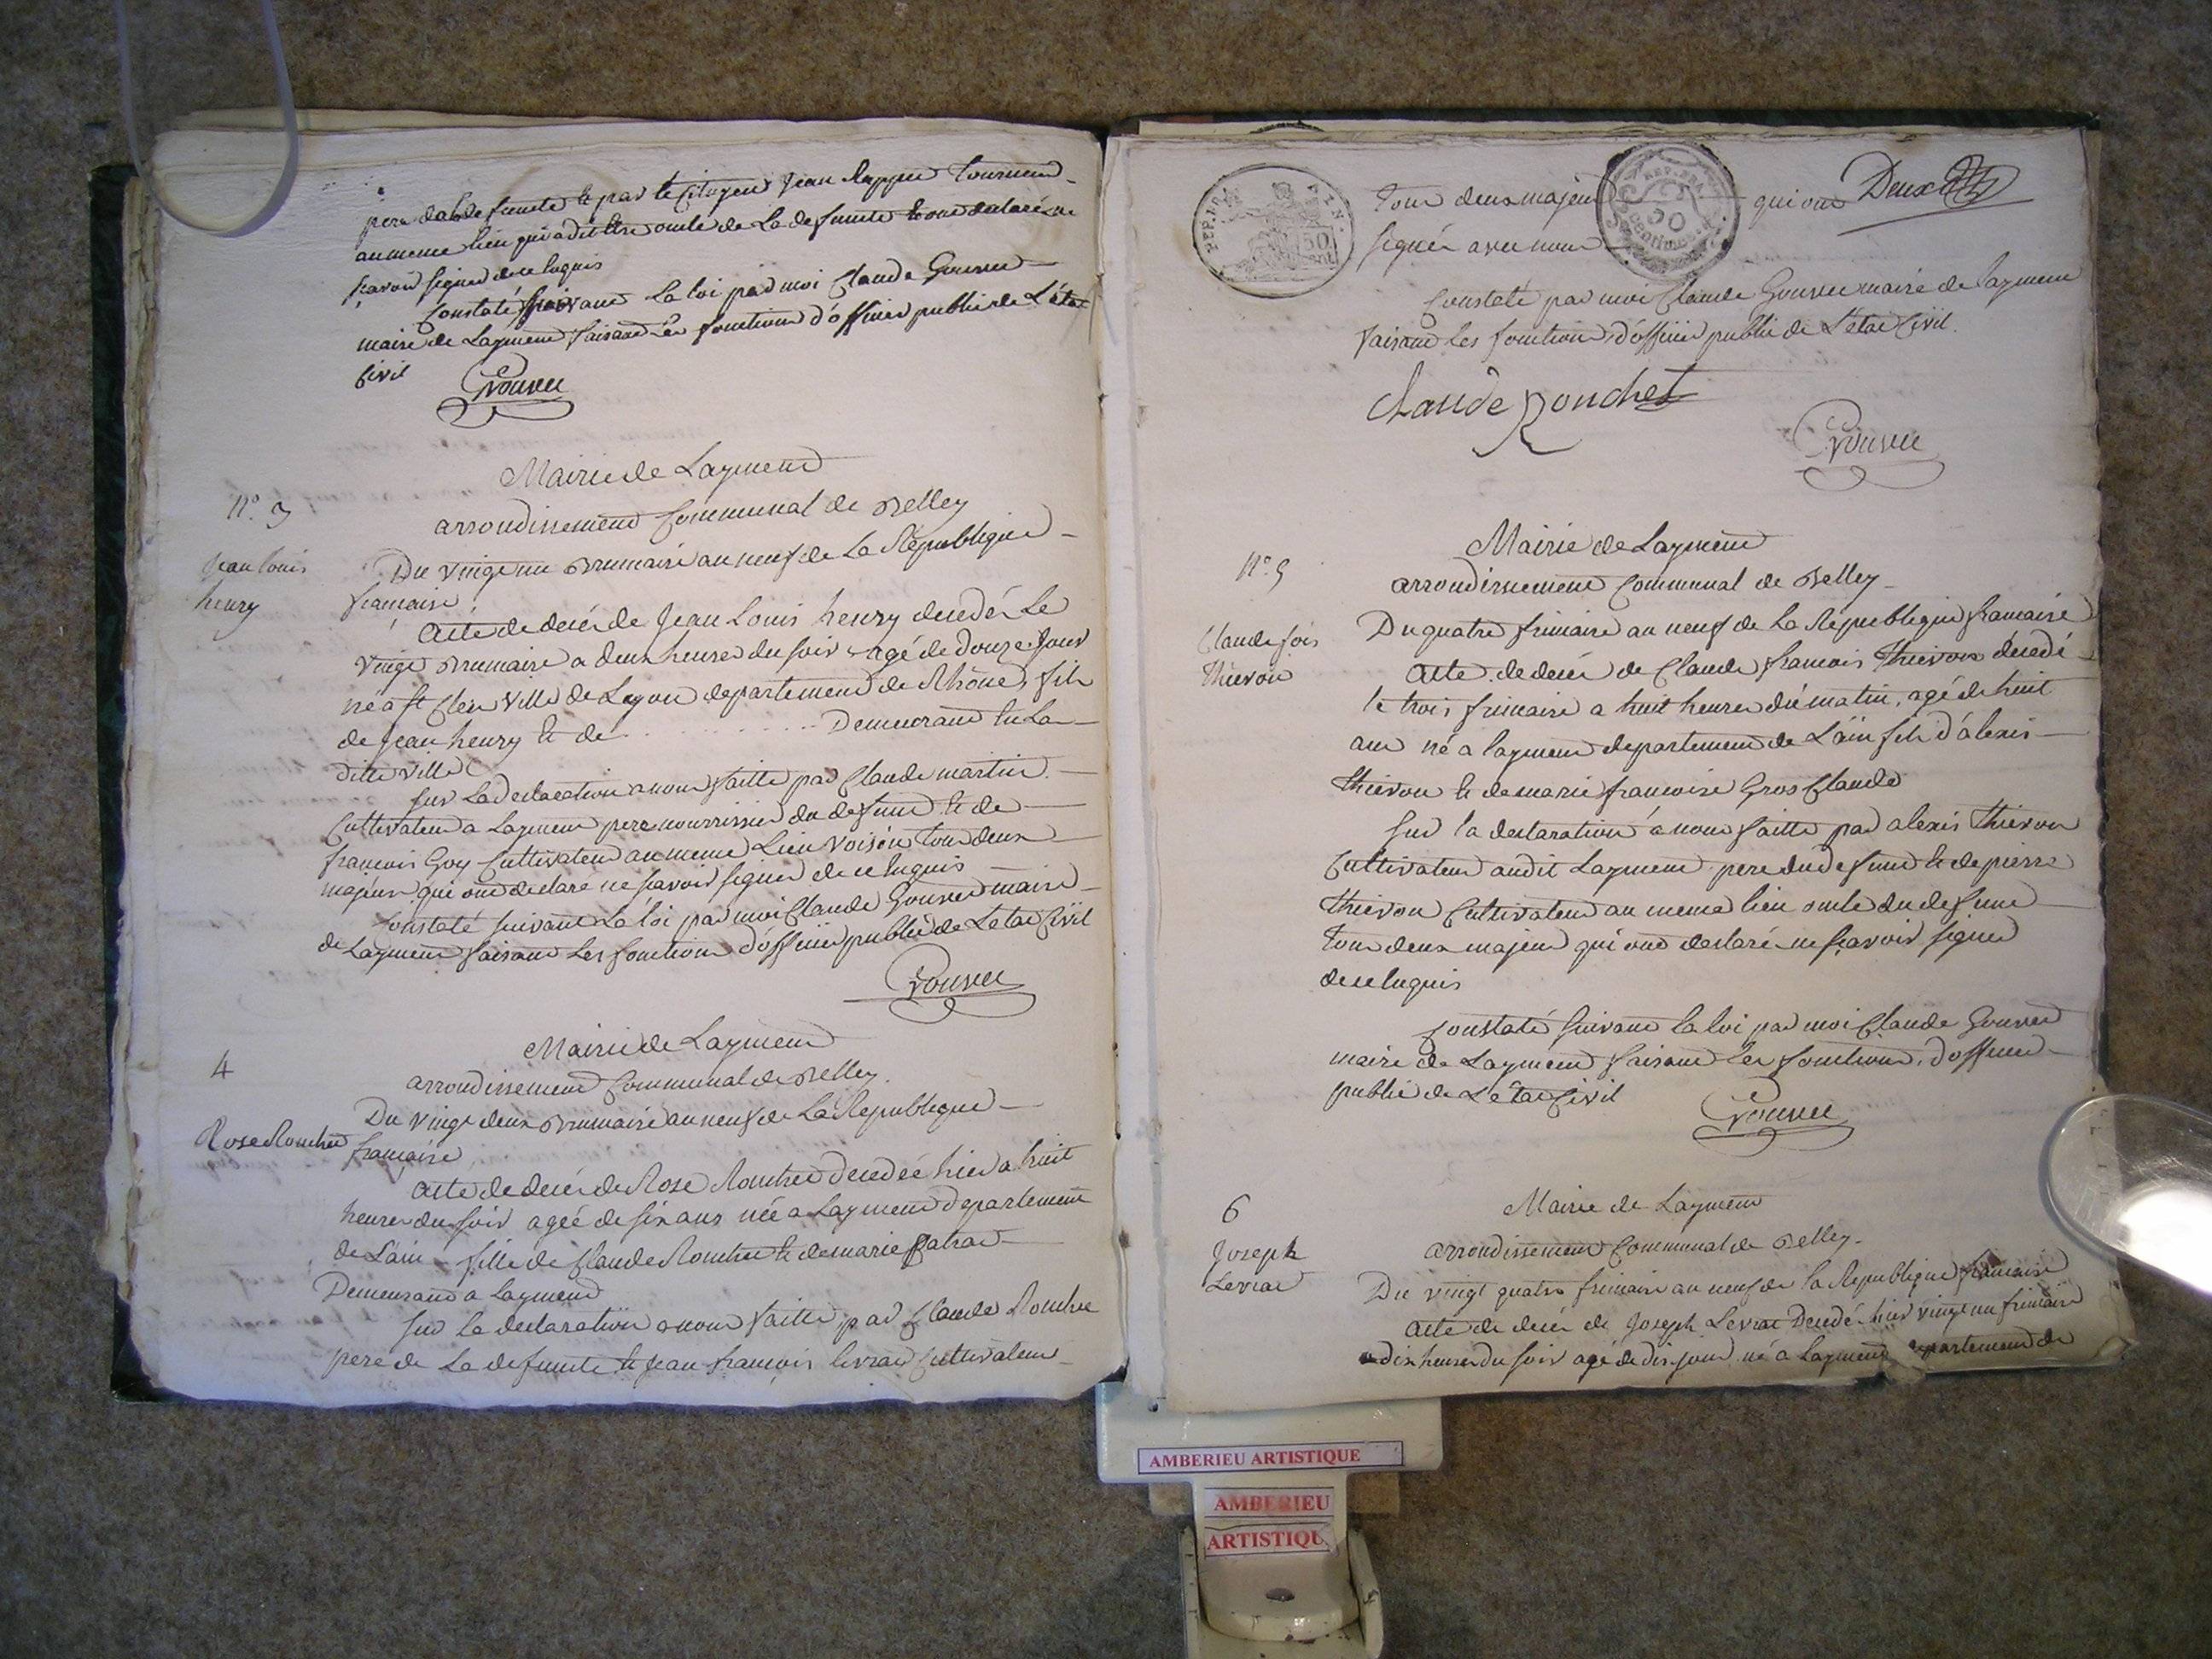 pere de la defunte et par le Citoyen Jean
au meme lieu qui a dit etre oncle de La defunte et ont declaré ne
scavoir signer de ce Inquis
Constaté suivant La loi par moi Claude Gouvee
maire de Laymens faisant Les fonctions d'officier public de L'état
Civil
Gouvee
Mairie de Laymens
arrondissement Communal de Belley
N.º 3
Jean Louis
henry
Du vingt un Brumaire an neuf de La Republique
francaise
Acte de decés de Jean Louis henry decedé Le
vingt Brumaire a deux heures du soir agé de Douze Jours
né a st Ville de Lyon departement de Rhône, fils
de Jean henry et de . . . . . . . . . . Demeurant en La
ditte Ville
sur La declaration a nous faitte par Claude martin
Cultivateur a Laymens pere nourrissier du defunt et de
francois Goy Cultivateur au meme Lieu voisin tous deux
majeurs qui ont declare ne scavoir signer de ce Inquis
Constaté suivant La loi par moi Claude Gouvee maire
de Laymens faisant Les fonctions d'officier public de L'etat Civil
Gouvee
Mairie de Laymens
arrondissement Communal de Belley
4
Rose Ronchet
Du vingt deux Brumaire an neuf de La Republique
francaise
Acte de decés de Rose Ronchet decedée hier a huit
heures du soir agée de six ans née a Laymens departement
de L'ain fille de Claude Ronchet et de marie
Demeurant a Laymens
sur la declaration a nous faitte par Claude Ronchet
pere de La defunte et Jean francois levrat Cultivateur
REP. FRA.
50
cent
REP. FRA.
50
centimes
tous deux majeurs qui ont Deux
signés avec nous
Constaté par moi Claude Gouvee maire de laymens
faisant Les fonctions d'officier public de L'etat Civil.
Claude Ronchet
Gouvee
Mairie de Laymens
arrondissement Communal de Belley
N.º 5
Claude fois
thievon
Du quatre frimaire an neuf de La Republique francaise
Acte de decés de Claude francois thievon décedé
le trois frimaire a huit heures du matin, agé de huit
ans né a laymens departement de L'ain fils d'alexis
thievon et de marie francoise Gros Claude
sur la declaration a nous faitte par alexis thievon
Cultivateur audit Laymens pere du defunt et de pierre
thievon Cultivateur au meme lieu oncle du defunt
tous deux majeurs qui ont declaré ne scavoir signer
de ce Inquis
Constaté suivant la loi par moi Claude Gouvee
maire de Laymens faisant Les fonctions d'officier
public de L'etat Civil
Gouvee
Mairie de Laymens
arrondissement Communal de Belley
6
Joseph
Levrat
Du vingt quatre frimaire an neuf de la Republique francaise
Acte de decés de Joseph Levrat Decedé hier vingt un frimaire
a dix heures du soir agé de dix jours né a Laymens departement de
AMBERIEU ARTISTIQUE
AMBERIEU
ARTISTIQU